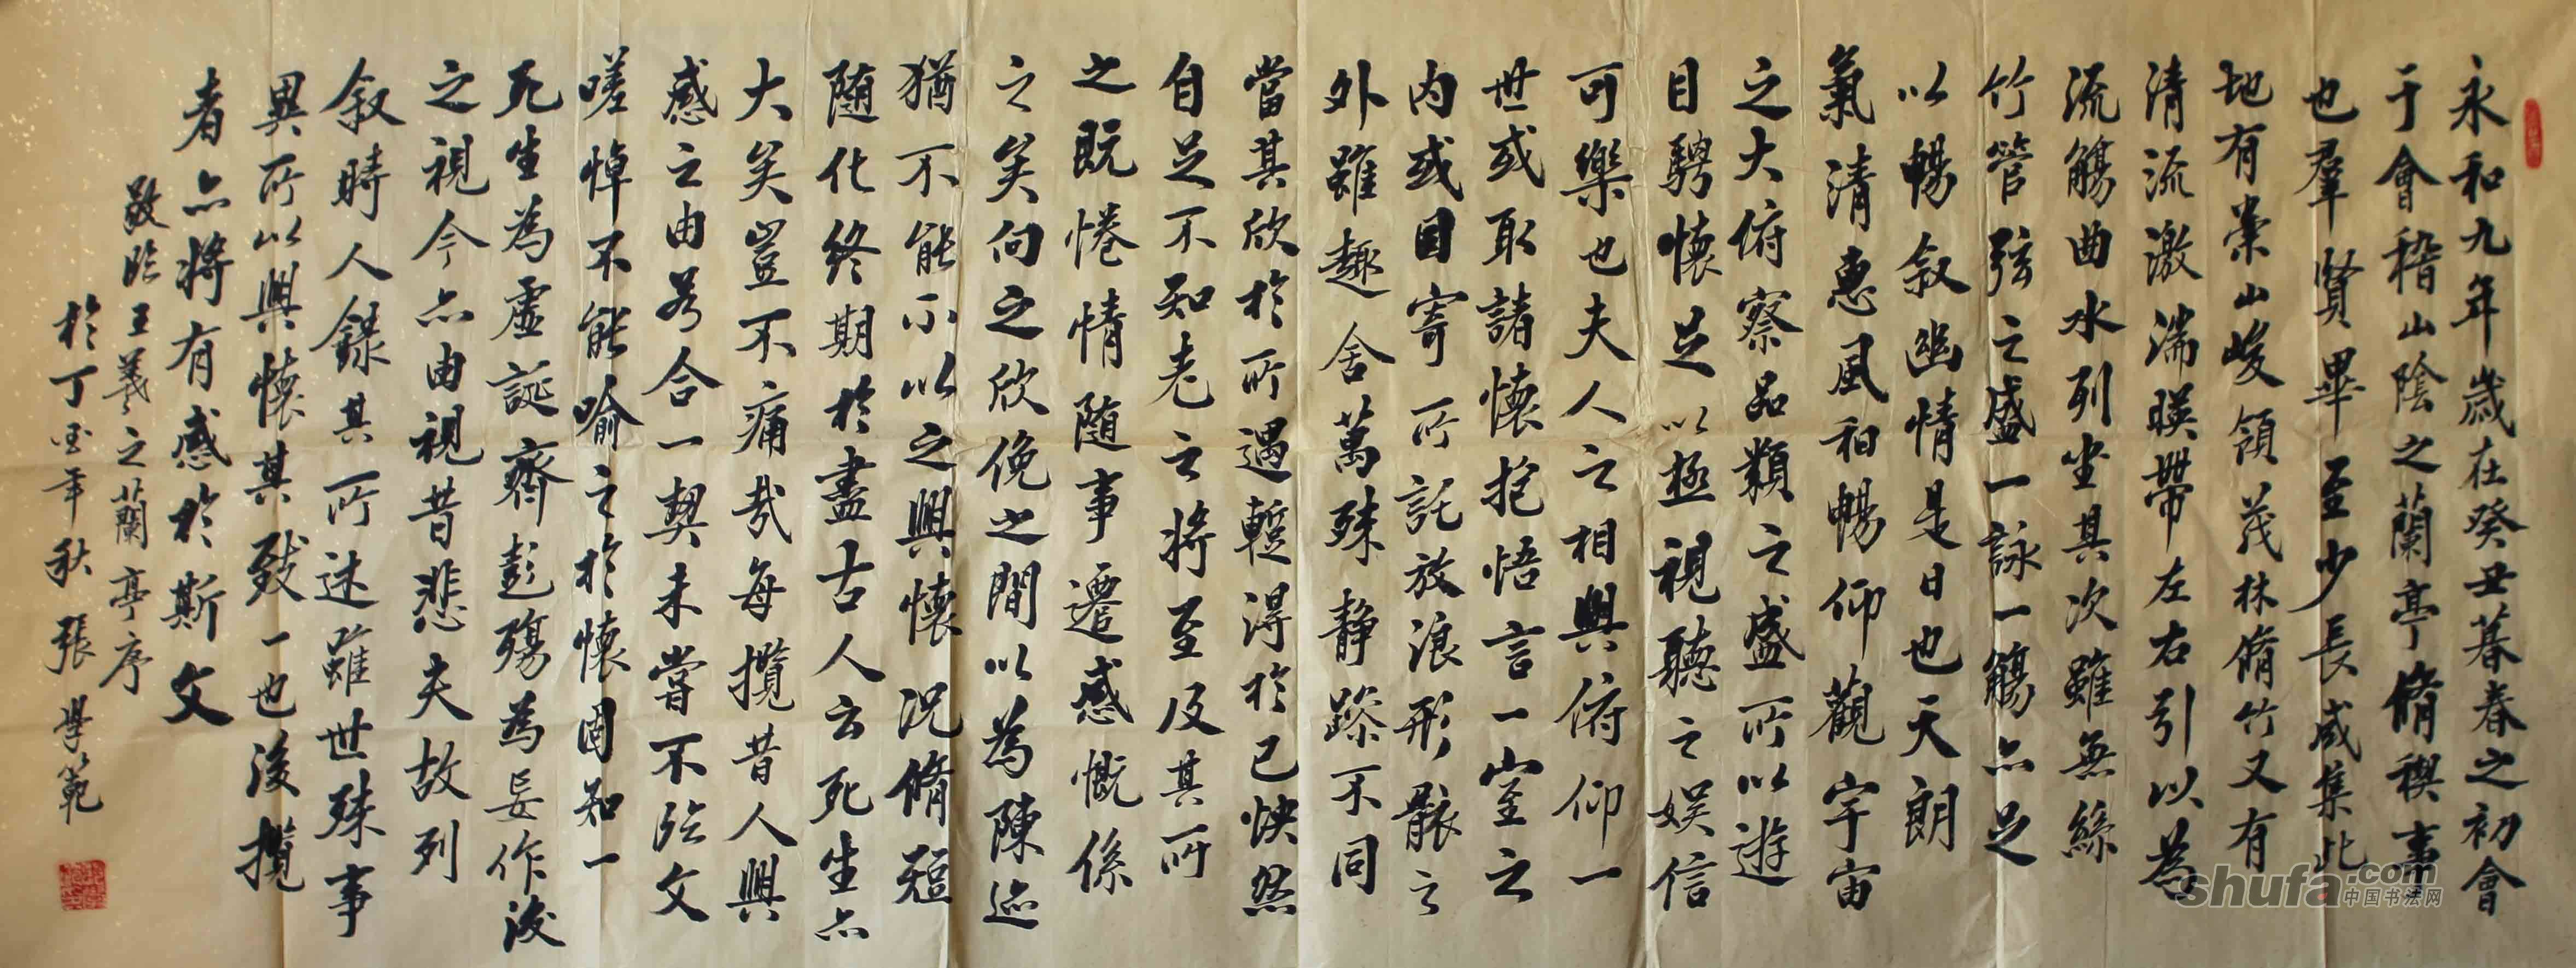 永和九年歲在癸丑暮春之初會
于會稽山陰之蘭亭脩稧事
也羣賢畢至少長咸集此
地有崇山峻領茂林脩竹又有
清流激湍暎帶左右引以為
流觴曲水列坐其次雖無絲
竹管弦之盛一詠一觴亦足
以暢叙幽情是日也天朗
氣清惠風和暢仰觀宇宙
之大俯察品類之盛所以遊
目騁懷足以極視聽之娛信
可樂也夫人之相與俯仰一
世或取諸懷抱悟言一室之
內或因寄所託放浪形骸之
外雖趣舍萬殊靜躁不同
當其欣於所遇暫得於己怏然
自足不知老之將至及其所
之既惓情隨事遷感慨係
之矣向之欣俛之間以為陳迹
猶不能不以之興懷況脩短
隨化終期於盡古人云死生亦
大矣豈不痛哉每攬昔人興
感之由若合一契未嘗不臨文
嗟悼不能喻之於懷固知一
死生為虛誕齊彭殤為妄作後
之視今亦由視昔悲夫故列
叙時人錄其所述雖世殊事
異所以興懷其致一也後攬
者亦將有感於斯文
敬臨王羲之蘭亭序
於丁 年秋 張學範
shufa.com
中国书法网